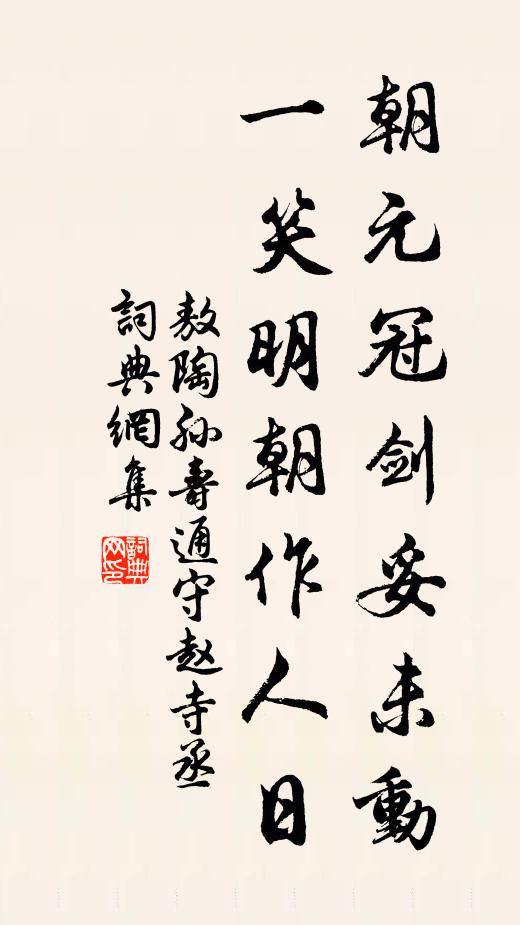 朝元冠剑妥未動
一笑明朝作人日
敖陶孙壽通守赵寺丞
詞典網集
詞典网印